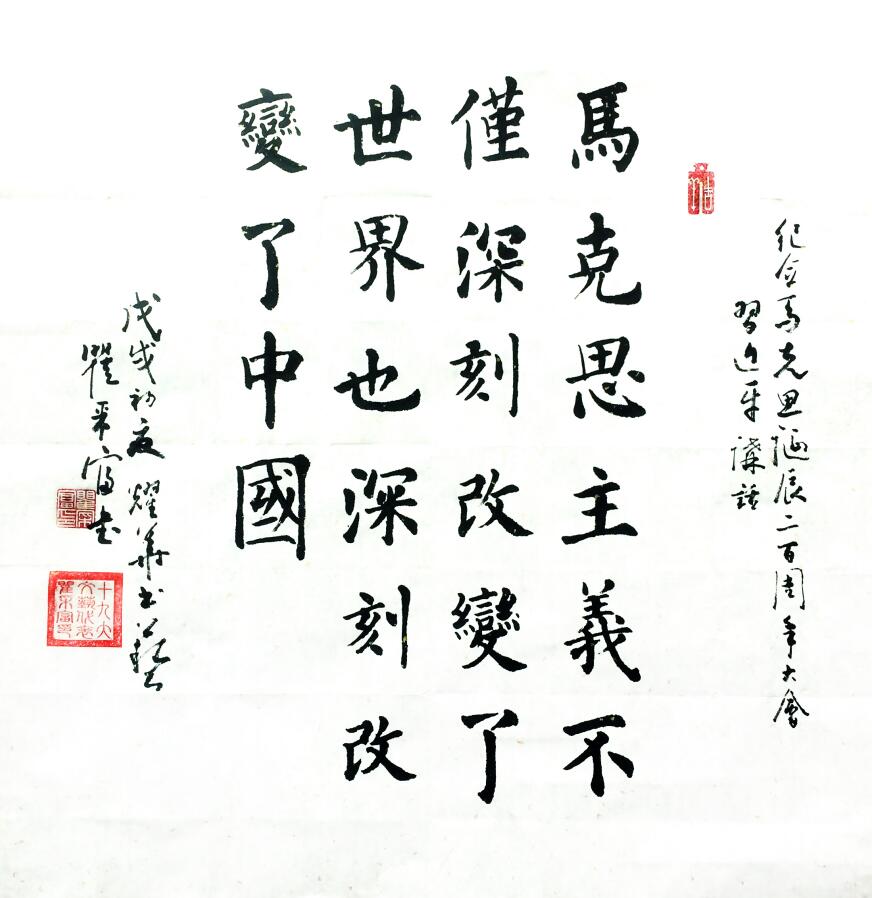 紀念馬克思誕辰二百周年大會
習近平講話
馬克思主義不
僅深刻改變了
世界也深刻改
變了中國
戊戌初夏耀華書藝
瞿采富書
十九大